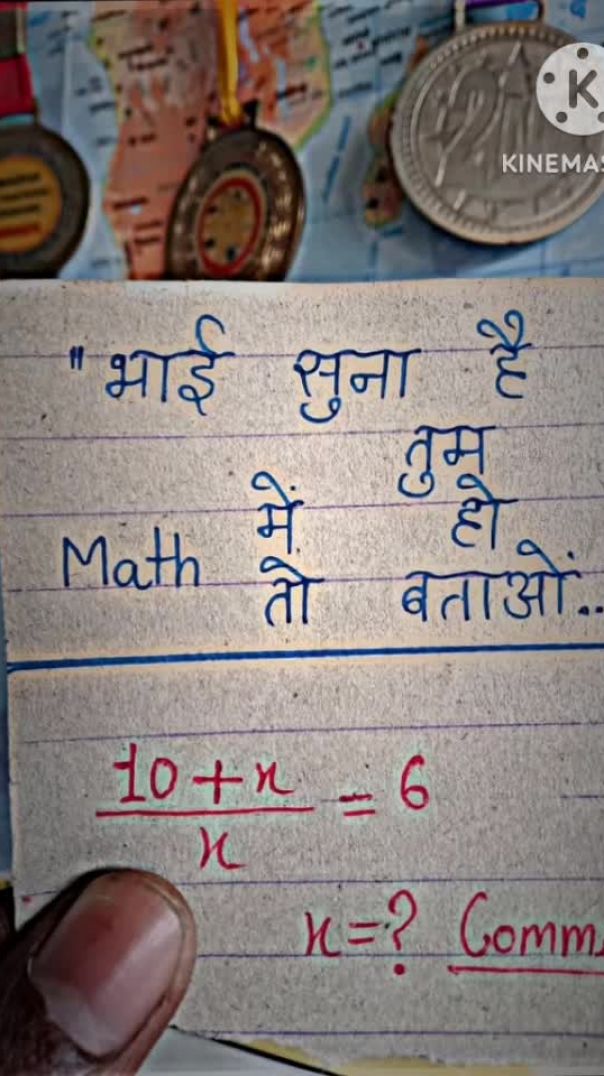 KINEMAS
"भाई सुना है
तुम
Math में हो
तो बताओं..
10+x
x
= 6
x=? Comm